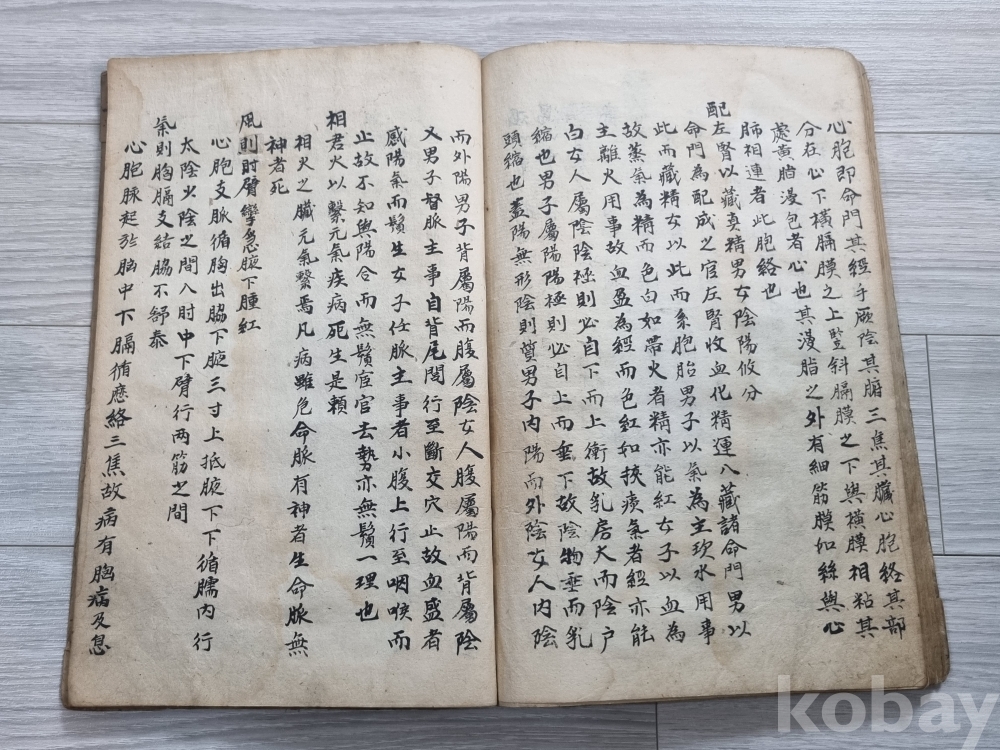 心胞即命門其經手厥陰其腑三焦其臟心胞絡其部
分在心下橫膈膜之上竪斜膈膜之下與橫膜相粘其
處黃脂漫包者心也其漫脂之外有細筋膜如絲與心
肺相連者此胞絡也
配左腎以藏真精男女陰陽攸分
命門為配成之官左腎收血化精運八藏諸命門男以
此而藏精女以此而系胞胎男子以氣為主坎水用事
故蒸氣為精而色白如帶火者精亦能紅女子以血為
主離火用事故血盈為經而色紅如挾痰氣者經亦能
白女人屬陰陰極則必自下而上衝故乳房大而陰戶
縮也男子屬陽陽極則必自上而垂下故陰物垂而乳
頭縮也蓋陽無形陰則質男子內陽而外陰女人內陰
而外陽男子背屬陽而腹屬陰女人腹屬陽而背屬陰
又男子督脈主事自背尾閭行至斷交穴止故血盛者
感陽氣而鬚生女子任脈主事者小腹上行至咽喉而
止故不知無陽令而無鬚宦官去勢亦無鬚一理也
相君火以繫元氣疾病死生是賴
相火之臟元氣繫焉凡病雖危命脈有神者生命脈無
神者死
風則肘臂攣急腋下腫紅
心胞支脈循胸出脇下腋三寸上抵腋下下循臑內行
太陰少陰之間入肘中下臂行兩筋之間
氣則胸膈支結脇不舒泰
心胞脉起於胸中下膈循應絡三焦故病有胸痛及息
kobay